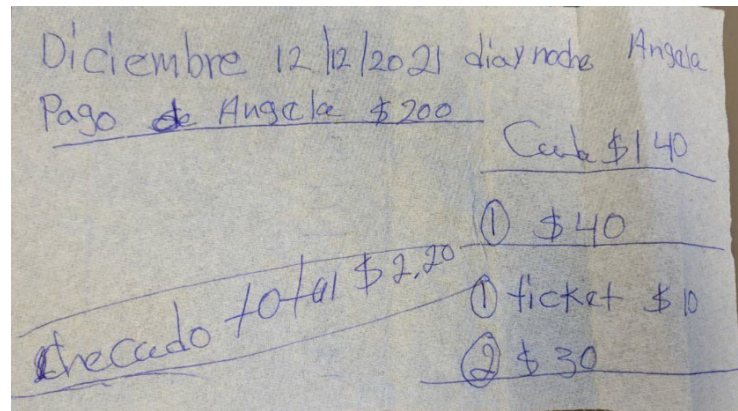 Diciembre 12/12/2021 dia y noche Angela
Pago de Angela $200
$140
① $40
checado total $2,20
① ticket $10
② $30